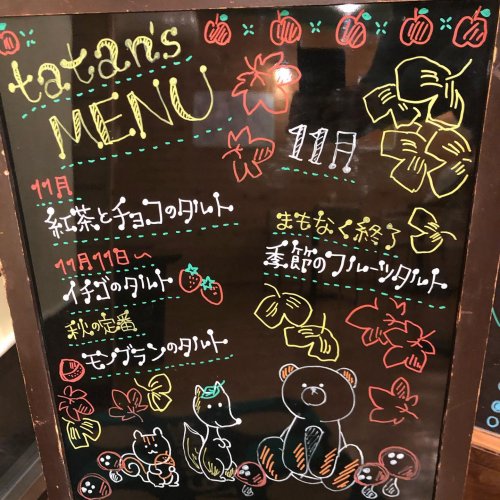 tatan's
MENU
11月
11月
紅茶とチョコのタルト
11月11日〜
イチゴのタルト
秋の定番
モンブランのタルト
まもなく終了
季節のフルーツタルト